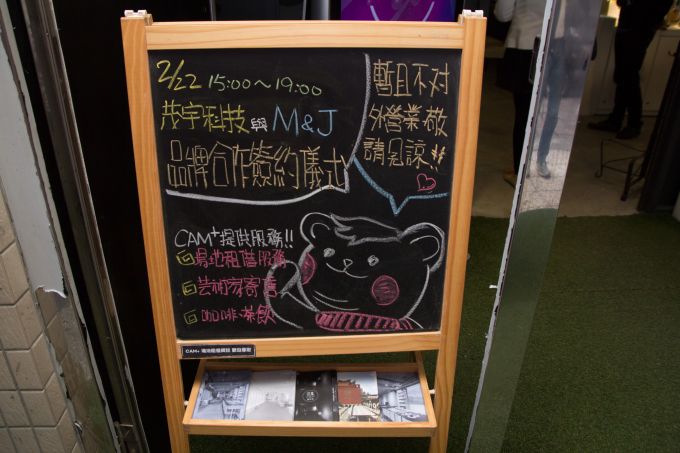 2/22 15:00~19:00
茂宇科技與 M&J
品牌合作簽約儀式
暫且不对
外營業敬
請見諒!!
CAM+提供服務!!
場地租借服務
芸術家寄賣
咖啡、茶飲